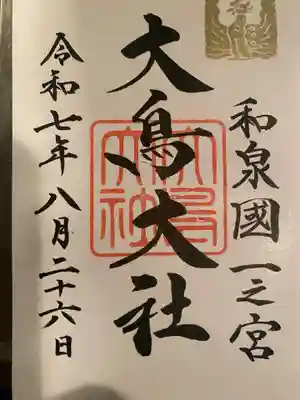 和泉國一之宮
大鳥大社
令和七年八月二十六日